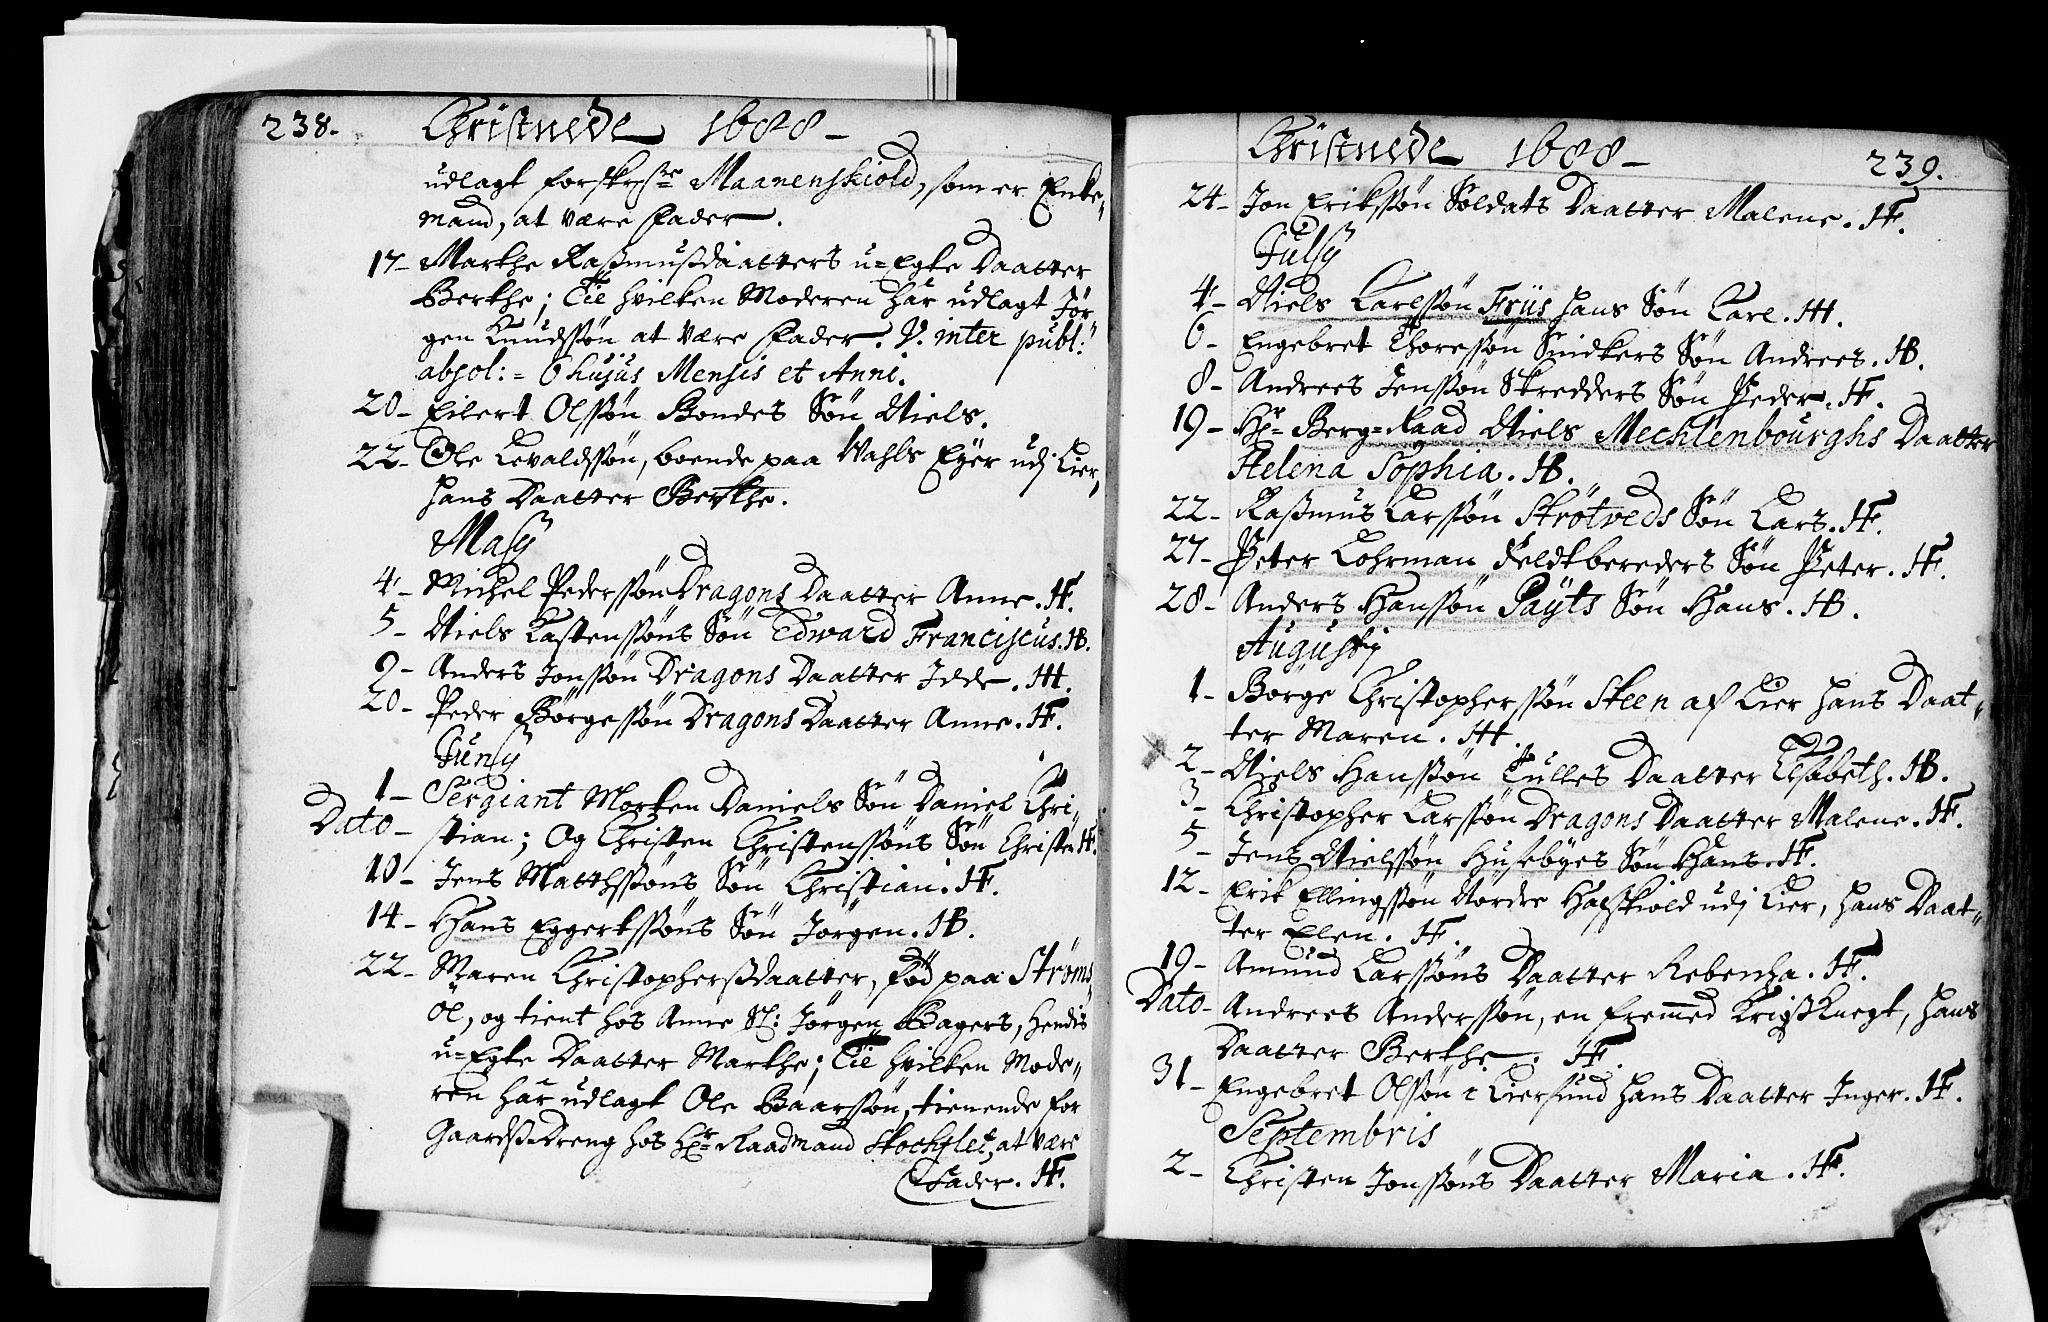 238.
Christnede 1688
udlagt forskrefne Maanenskiold, som er Enke-
mand, at være Fader.
17- Marthe Rasmusdaatters u=Egte Daatter
Berthe; Til hvilken Moderen har udlagt Jør-
gen Knudssøn at være Fader. V. inter publ:
absol:= 6 hujus Mensis et Anni.
20- Eilert Olssøn Bondes Søn Niels.
22- Ole Levaldssøn, boende paa Wahls Eyer udj Lier,
hans Daatter Berthe.
Maij
4- Michel Pederssøn Dragons Daatter Anne. HF.
5- Niels Castenssøns Søn Edward Franciscus. HB.
9- Anders Jonssøn Dragons Daatter Idde. HH.
20- Peder Børgessøn Dragons Daatter Anne. HF.
Junij
1- Sergiant Morten Daniels Søn Daniel Chri-
Dato- stian; Og Christen Christenssøns Søn Christen HF.
10- Jens Matthssøns Søn Christian. HF.
14- Hans Eggertssøns Søn Jørgen. HB.
22- Maren Christophersdaatter, fød paa Strøms
Øl, og tient hos Anne Sl: Jørgen Bagers, hendis
u=Egte Daatter Marthe; Til hvilken Mode-
ren har udlagt Ole Baarssøn, tienende for
Gaards=Dreng hos Hr= Raadmand Stockflet, at være
Fader. HF.
Christnede 1688
239.
24- Jon Erikssøn Soldats Daatter Malene. HF.
Julij
4- Niels Carlssøn Friis hans Søn Carl. HH.
6- Engebret Thoressøn Snidkers Søn Andrees. HB.
8- Andrees Jenssøn Skredders Søn Peder. HF.
19- Hr= Berg=Raad Niels Mechlenbourghs Daatter
Helena Sophia. HB.
22- Rasmus Larssøn Strøtveds Søn Lars. HF.
27- Peter Lohrman Feldtbereders Søn Peter. HF.
28- Anders Hanssøn Payts Søn Hans. HB.
Augustij
1- Børge Christopherssøn Steen af Lier hans Daat-
ter Maren. HH.
2- Niels Hanssøn Tulles Daatter Elsebeth. HB.
3- Christopher Larssøn Dragons Daatter Malene. HF.
5- Jens Nielssøn Husebyes Søn Hans. HF.
12- Erik Ellingssøn Nordre Hafskiold udj Lier, hans Daat-
ter Elen. HF.
19- Amund Larssøns Daatter Rebencha. HF.
Dato- Andrees Anderssøn, en fremmed Krigsknegt, hans
Daatter Berthe. HF.
31- Engebret Olssøn i Liersund hans Daatter Inger. HF.
Septembris
2- Christen Jonssøns Daatter Maria. HF.